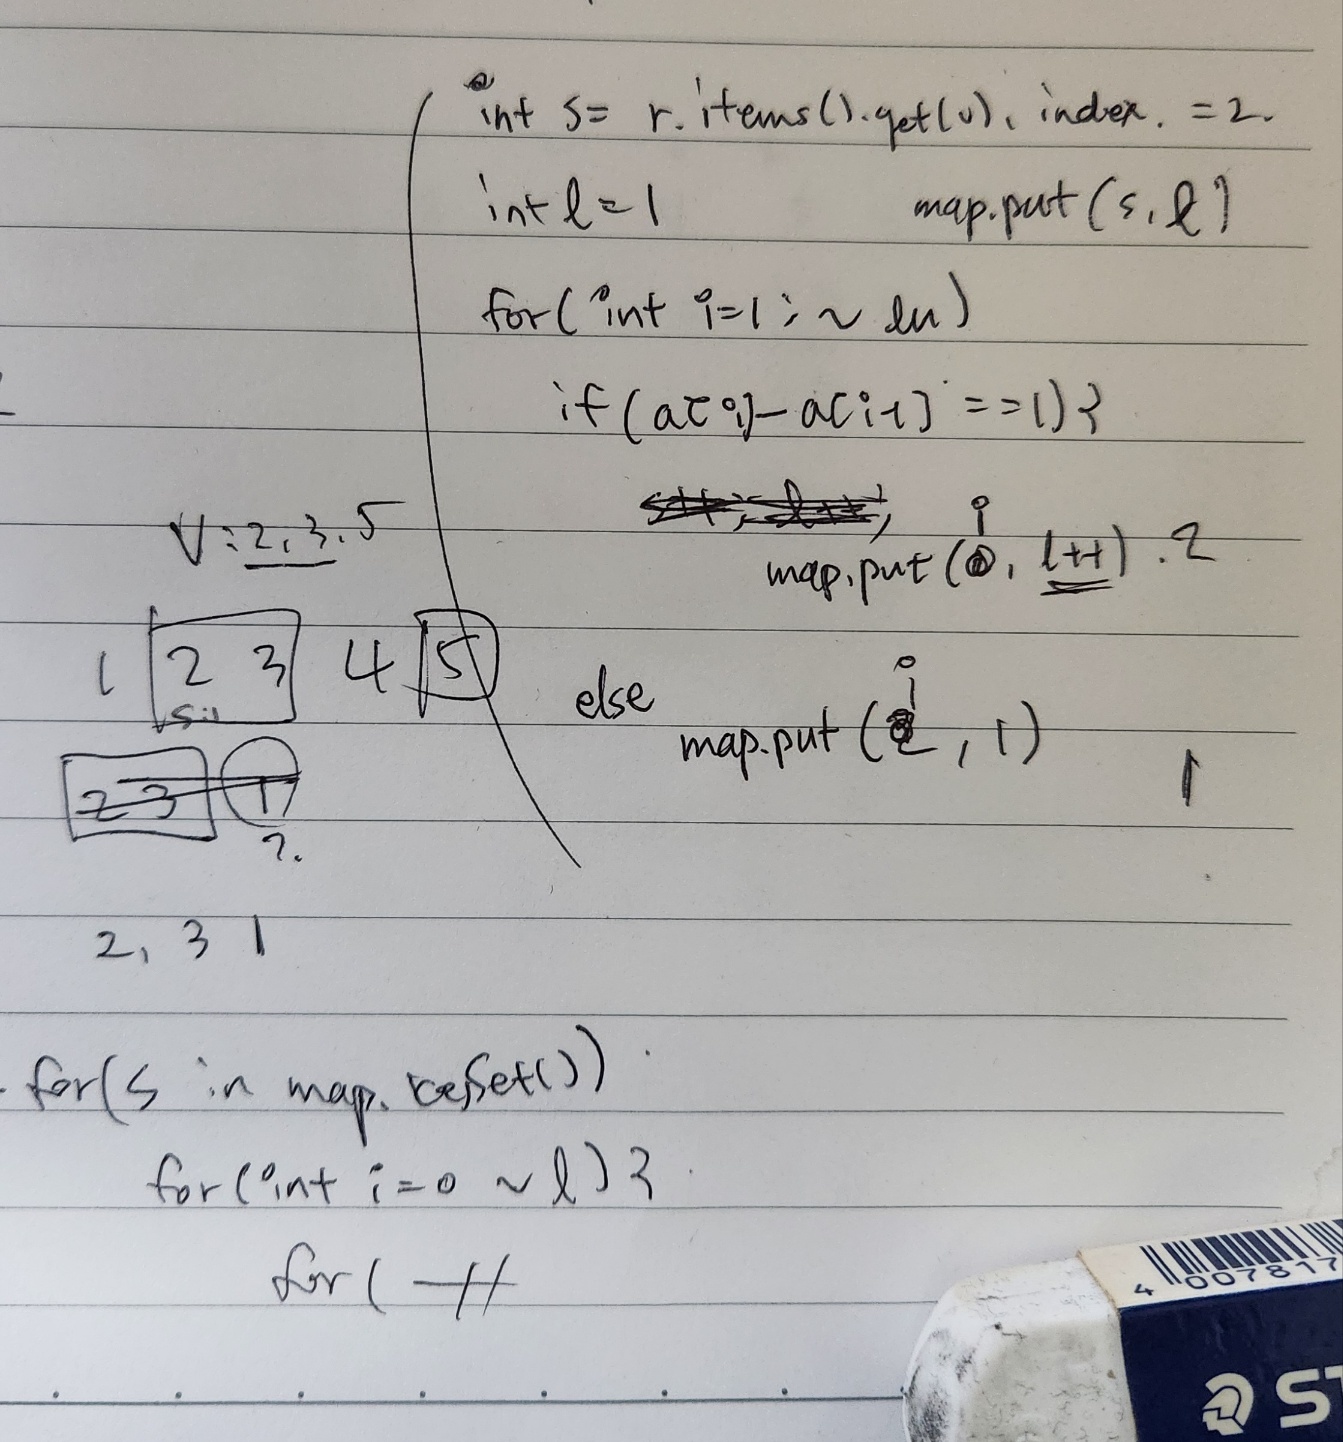 int s= r.items().get(0). index. =2.
int l=1 map.put(s,l)
for(int i=1; ~ ln)
if(a[i]-a[i-1] ==1){
V:2,3.5
i
map.put( , l++) .2
1 2 3 4 5
else
i
map.put( , 1)
1
2 3 1
?.
2, 3 1
for(s in map. keySet())
for(int i=0 ~ l){
for(
4 007817
ST